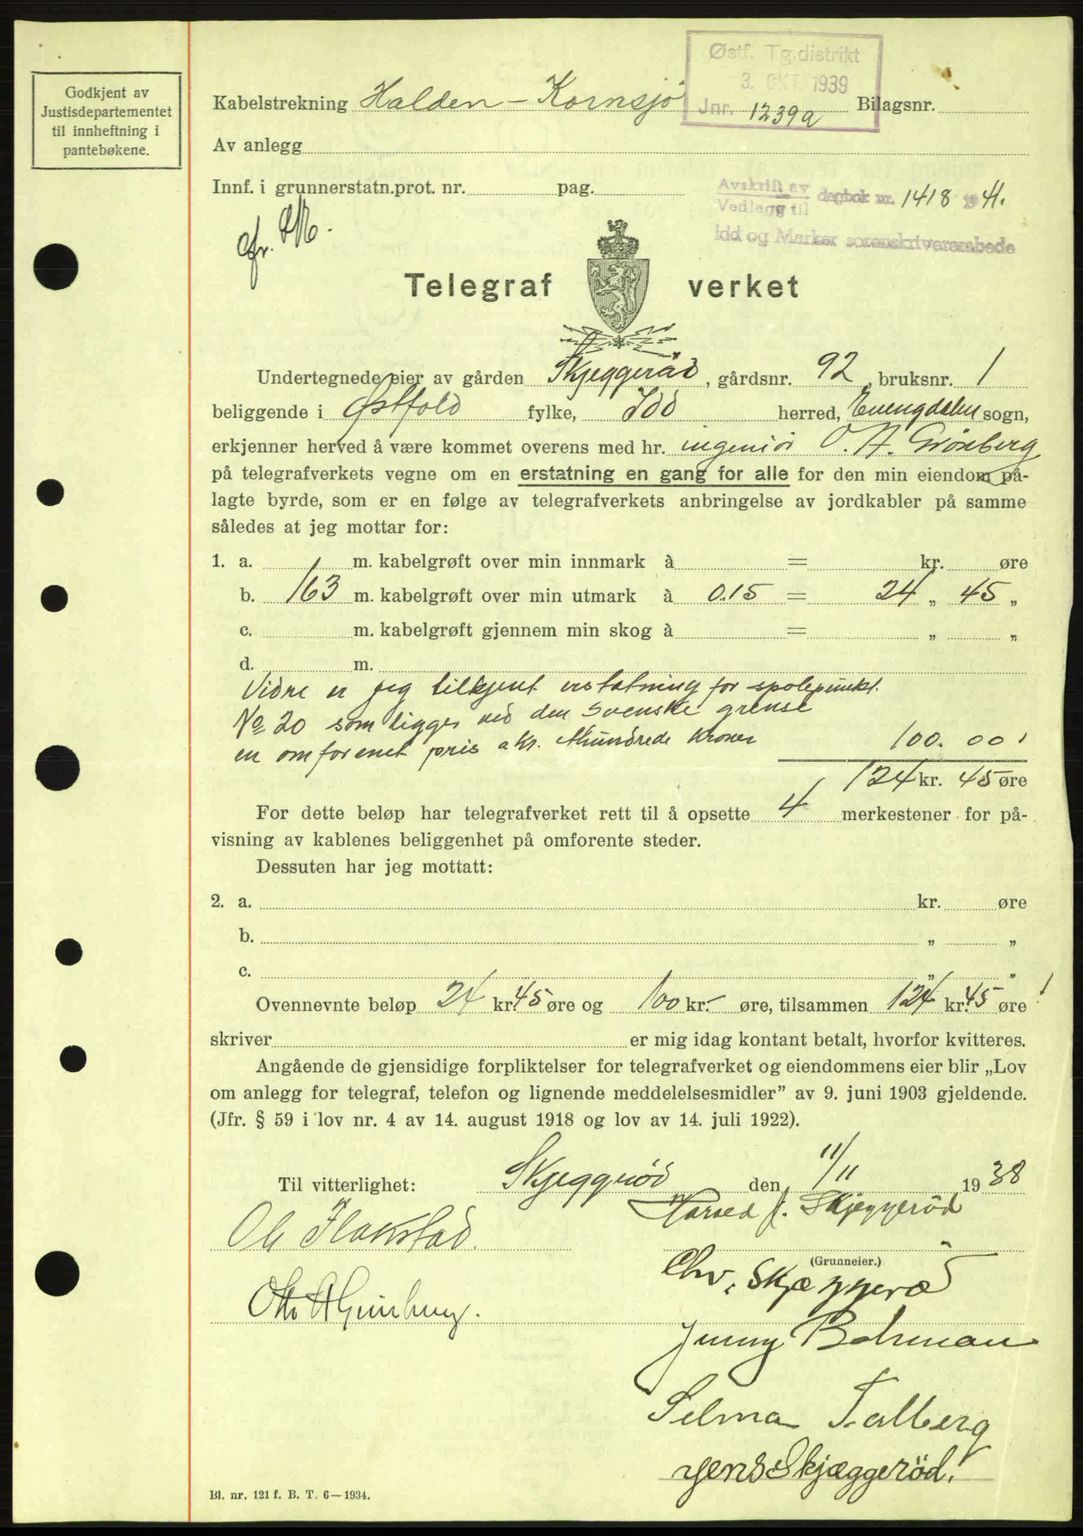 Godkjent av
Justisdepartementet
til innheftning i
pantebøkene.
Østf. Tg.distrikt
3. OKT. 1939
Jnr. 1239a
Kabelstrekning Halden - Kornsjø Bilagsnr.
Av anlegg
Innf. i grunnerstatn.prot. nr. pag.
Avskrift av
Vedlegg til dagbok nr. 1418 1941.
Idd og Marker sorenskriverembede
Telegrafverket
Undertegnede eier av gården Skjeggerød, gårdsnr. 92, bruksnr. 1
beliggende i Østfold fylke, Idd herred, Enengdalen sogn,
erkjenner herved å være kommet overens med hr. ingeniør O. A. Grönberg
på telegrafverkets vegne om en erstatning en gang for alle for den min eiendom på-
lagte byrde, som er en følge av telegrafverkets anbringelse av jordkabler på samme
således at jeg mottar for:
1. a. m. kabelgrøft over min innmark à = kr. øre
b. 163 m. kabelgrøft over min utmark à 0.15 = 24 „ 45 „
c. m. kabelgrøft gjennem min skog à = „ „
d. m.
Vidre er jeg tilkjent erstatning for spolepunkt.
No 20 som ligger ved den Svenske grense
en omforenet pris a kr. Hundrede Kroner 100.00
124 kr. 45 øre
For dette beløp har telegrafverket rett til å opsette 4 merkestener for på-
visning av kablenes beliggenhet på omforente steder.
Dessuten har jeg mottatt:
2. a. kr. øre
b. „ „
c. „ „
Ovennevnte beløp 24 kr. 45 øre og 100 kr. - øre, tilsammen 124 kr. 45 øre
skriver er mig idag kontant betalt, hvorfor kvitteres.
Angående de gjensidige forpliktelser for telegrafverket og eiendommens eier blir „Lov
om anlegg for telegraf, telefon og lignende meddelelsesmidler” av 9. juni 1903 gjeldende.
(Jfr. § 59 i lov nr. 4 av 14. august 1918 og lov av 14. juli 1922).
Til vitterlighet: Skjeggerød den 11/11 1938
J. Skjeggerød
Ole Flakstad.
(Grunneier.)
Chr. Skjæggerød
Otto
Jenny Bohman
Selma Talberg
Jens Skjæggerød.
Bl. nr. 121 f. B. T. 6—1934.